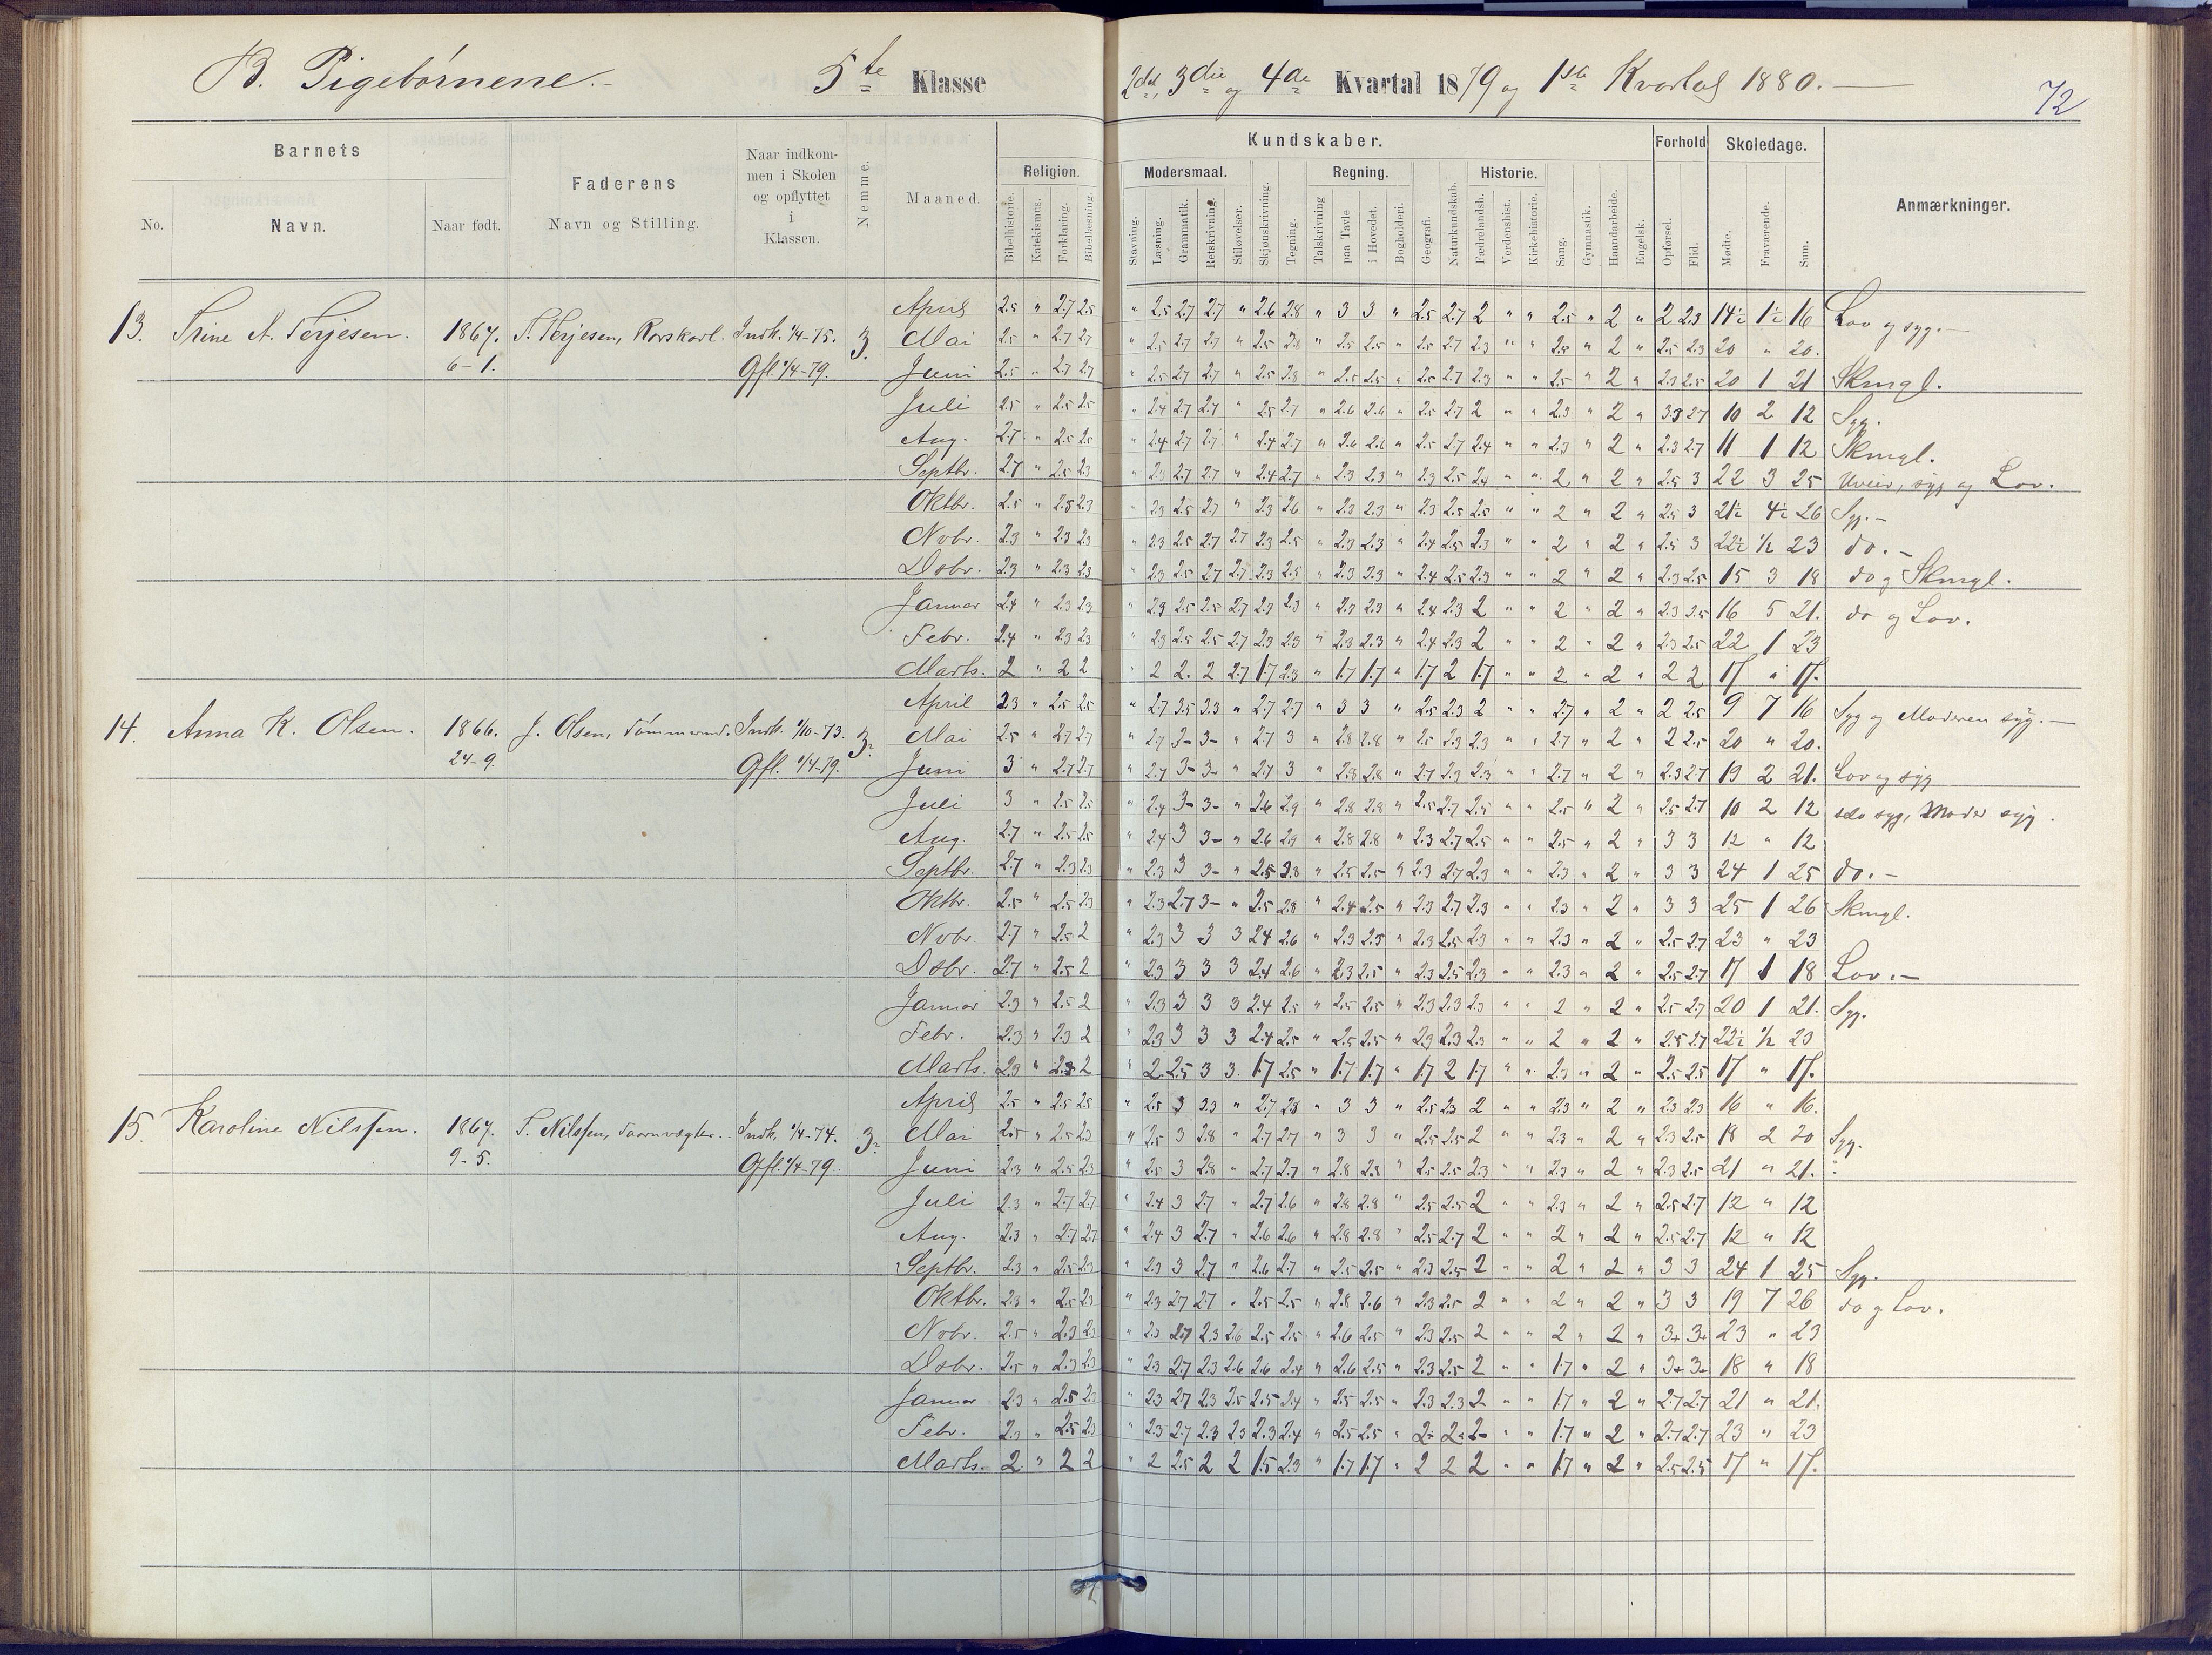 B. Pigebørnene. 5te Klasse
2det, 3die og 4de Kvartal 1879 og 1ste Kvartal 1880.
72
Barnets
No.
Navn.
Naar født.
Faderens
Navn og Stilling.
Naar indkom-
men i Skolen
og opflyttet
i
Klassen.
Nemme.
Maaned.
Religion.
Bibelhistorie.
Katekismus.
Forklaring.
Bibellæsning.
Kundskaber.
Modersmaal.
Stavning.
Læsning.
Grammatik.
Retskrivning.
Stiløvelser.
Skjønskrivning.
Tegning.
Regning.
Talskrivning
paa Tavle
i Hovedet.
Bogholderi.
Geografi.
Naturkundskab.
Historie.
Fædrelandsh.
Verdenshist.
Kirkehistorie.
Sang.
Gymnastik.
Haandarbeide.
Engelsk.
Forhold
Opførsel.
Flid.
Skoledage.
Mødte.
Fraværende.
Sum.
Anmærkninger.
13. Trine A. Terjesen. 1867. 6-1. T. Terjesen, Indk. 1/4-75. Opfl. 1/4-79. 3.
April 2.5 " 2.7 2.5 " 2.5 2.7 2.7 " 2.6 2.8 " 3 3 " 2.5 2.7 2 " " 2.5 " 2 " 2 2.3 14½ 1½ 16 Lov og syg.
Mai 2.5 " 2.7 2.7 " 2.5 2.7 2.7 " 2.5 2.8 " 2.5 2.5 " 2.5 2.7 2.3 " " 2.5 " 2 " 2.5 2.3 20 " 20.
Juni 2.5 " 2.7 2.7 " 2.5 2.7 2.7 " 2.5 2.8 " 2.5 2.5 " 2.5 2.7 2.3 " " 2.5 " 2 " 2.3 2.5 20 1 21 Skmgl.
Juli 2.5 " 2.5 2.5 " 2.4 2.7 2.7 " 2.5 2.7 " 2.6 2.6 " 2.5 2.7 2 " " 2.3 " 2 " 3.3 2.7 10 2 12 Syg.
Aug. 2.7 " 2.5 2.5 " 2.4 2.7 2.7 " 2.4 2.7 " 2.6 2.6 " 2.5 2.7 2.4 " " 2.3 " 2 " 2.3 2.7 11 1 12 Skmgl.
Septbr. 2.7 " 2.5 2.3 " 2.3 2.7 2.7 " 2.4 2.7 " 2.3 2.3 " 2.3 2.5 2.4 " " 2 " 2 " 2.5 3 22 3 25 Uveir, syg og Lov.
Oktbr. 2.5 " 2.5 2.3 " 2.3 2.5 2.7 " 2.3 2.6 " 2.3 2.3 " 2.3 2.5 2.5 " " 2 " 2 " 2.5 3 21½ 4½ 26 Syg.
Nvbr. 2.3 " 2.3 2.3 " 2.3 2.5 2.7 2.7 2.3 2.5 " 2.3 2.3 " 2.4 2.5 2.3 " " 2 " 2 " 2.5 3 22½ ½ 23 do.
Dsbr. 2.3 " 2.3 2.3 " 2.3 2.5 2.7 2.7 2.3 2.5 " 2.3 2.3 " 2.4 2.5 2.3 " " 2 " 2 " 2.3 2.5 15 3 18 do og Skmgl.
Januar 2.4 " 2.3 2.3 " 2.3 2.5 2.5 2.7 2.3 2.3 " 2.3 2.3 " 2.4 2.3 2 " " 2 " 2 " 2.3 2.5 16 5 21. do og Lov.
Febr. 2.4 " 2.3 2.3 " 2.3 2.5 2.5 2.7 2.3 2.3 " 2.3 2.3 " 2.4 2.3 2 " " 2 " 2 " 2.3 2.5 22 1 23
Marts. 2 " 2 2 " 2 2. 2 2.7 1.7 2.3 " 1.7 1.7 " 1.7 2 1.7 " " 2 " 2 " 2 2 17 " 17.
14. Anna K. Olsen. 1866. 24-9. J. Olsen, Tømmermd. Indk. 1/10-73. Opfl. 1/4-79. 3.
April 2.3 " 2.5 2.5 " 2.7 3.5 3.3 " 2.7 2.7 " 3 3 " 2.5 2.3 2 " " 2.7 " 2 " 2 2.5 9 7 16 Syg og Moderen syg.
Mai 2.5 " 2.7 2.7 " 2.7 3- 3- " 2.7 3 " 2.8 2.8 " 2.5 2.3 2.3 " " 2.7 " 2 " 2 2.5 20 " 20.
Juni 3 " 2.7 2.7 " 2.7 3- 3- " 2.7 3 " 2.8 2.8 " 2.7 2.3 2.3 " " 2.7 " 2 " 2.3 2.7 19 2 21. Lov og syg
Juli 3 " 2.5 2.5 " 2.4 3- 3- " 2.6 2.9 " 2.8 2.8 " 2.5 2.7 2.5 " " 2.5 " 2 " 2.5 2.7 10 2 12 syg, Moder syg.
Aug. 2.7 " 2.5 2.5 " 2.4 3 3- " 2.6 2.9 " 2.8 2.8 " 2.3 2.7 2.5 " " 2.5 " 2 " 3 3 12 " 12
Septbr. 2.7 " 2.3 2.3 " 2.3 3 3- " 2.5 2.8 " 2.5 2.5 " 2.3 2.7 2.3 " " 2.3 " 2 " 3 3 24 1 25 do.
Oktbr. 2.5 " 2.5 2.3 " 2.3 2.7 3- " 2.5 2.8 " 2.4 2.5 " 2.3 2.7 2.3 " " 2.3 " 2 " 3 3 25 1 26 Skmgl.
Nvbr. 2.7 " 2.5 2 " 2.3 3 3 3 2.4 2.6 " 2.3 2.5 " 2.3 2.5 2.3 " " 2.3 " 2 " 2.5 2.7 23 " 23
Dsbr. 2.7 " 2.5 2 " 2.3 3 3 3 2.4 2.6 " 2.3 2.5 " 2.3 2.5 2.3 " " 2.3 " 2 " 2.5 2.7 17 1 18 Lov.
Januar 2.3 " 2.5 2 " 2.3 3 3 3 2.4 2.5 " 2.5 2.5 " 2.3 2.3 2.3 " " 2 " 2 " 2.5 2.7 20 1 21. Syg.
Febr. 2.3 " 2.3 2 " 2.3 3 3 3 2.4 2.5 " 2.5 2.5 " 2.3 2.3 2.3 " " 2 " 2 " 2.5 2.7 22½ ½ 23
Marts. 2.3 " 2.3 2 " 2. 2.5 3 3. 1.7 2.5 " 1.7 1.7 " 1.7 2 1.7 " " 2.3 " 2 " 2.5 2.5 17 " 17.
15. Karoline Nilssen. 1867. 9-5. T. Nilssen, Taarnvægter. Indk. 1/4-74. Opfl. 1/4-79. 3.
April 2.5 " 2.5 2.5 " 2.5 3 3.3 " 2.7 2.8 " 3 3 " 2.5 2.3 2 " " 2.3 " 2 " 2.3 2.3 16 " 16.
Mai 2.5 " 2.5 2.3 " 2.5 3 2.8 " 2.7 2.7 " 3 3 " 2.5 2.5 2 " " 2.3 " 2 " 2.3 2.5 18 2 20 Syg.
Juni 2.3 " 2.5 2.3 " 2.5 3 2.8 " 2.7 2.7 " 2.8 2.8 " 2.5 2.5 2.3 " " 2.3 " 2 " 2.3 2.5 21 " 21.
Juli 2.3 " 2.7 2.7 " 2.4 3 2.7 " 2.7 2.6 " 2.8 2.8 " 2.5 2.5 2 " " 2.3 " 2 " 2.5 2.7 12 " 12
Aug. 2.3 " 2.7 2.7 " 2.4 3 2.7 " 2.6 2.6 " 2.8 2.8 " 2.5 2.7 2 " " 2 " 2 " 2.5 2.7 12 " 12
Septbr. 2.3 " 2.5 2.3 " 2.3 3 2.7 " 2.6 2.7 " 2.5 2.5 " 2.3 2.5 2 " " 2 " 2 " 3 3 24 1 25 Syg.
Oktbr. 2.3 " 2.5 2.3 " 2.3 2.7 2.7 " 2.5 2.5 " 2.8 2.6 " 2.3 2.5 2 " " 2 " 2 " 3 3 19 7 26 do og Lov.
Nvbr. 2.5 " 2.3 2.3 " 2.3 2.7 2.3 2.6 2.5 2.5 " 2.6 2.5 " 2.3 2.5 2 " " 2 " 2 " 3+ 3+ 23 " 23
Dsbr. 2.5 " 2.3 2.3 " 2.3 2.7 2.3 2.6 2.6 2.4 " 2.6 2.5 " 2.3 2.5 2 " " 1.7 " 2 " 3+ 3+ 18 " 18
Januar 2.3 " 2.5 2.3 " 2.3 2.7 2.3 2.5 2.5 2.4 " 2.5 2.5 " 2.3 2.3 2 " " 1.7 " 2 " 2.7 2.7 21 " 21.
Febr. 2.3 " 2.5 2.3 " 2.3 2.7 2.3 2.3 2.3 2.4 " 2.5 2.5 " 2- 2- 2- " " 1.7 " 2 " 2.7 2.7 23 " 23
Marts. 2 " 2 2 " 2 2.5 2 2 1.5 2.3 " 1.7 1.7 " 2 2 2 " " 1.7 " 2 " 2.5 2.5 17 " 17.